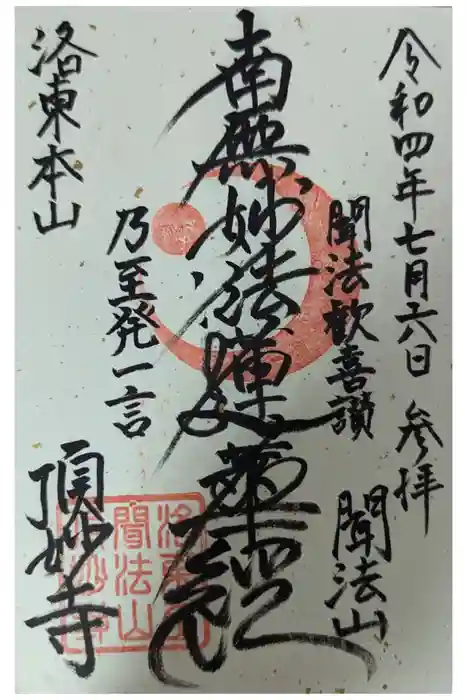 令和四年七月六日 参拝
聞法歓喜讃
聞法山
南無妙法蓮華経
乃至発一言
洛東本山
頂妙寺